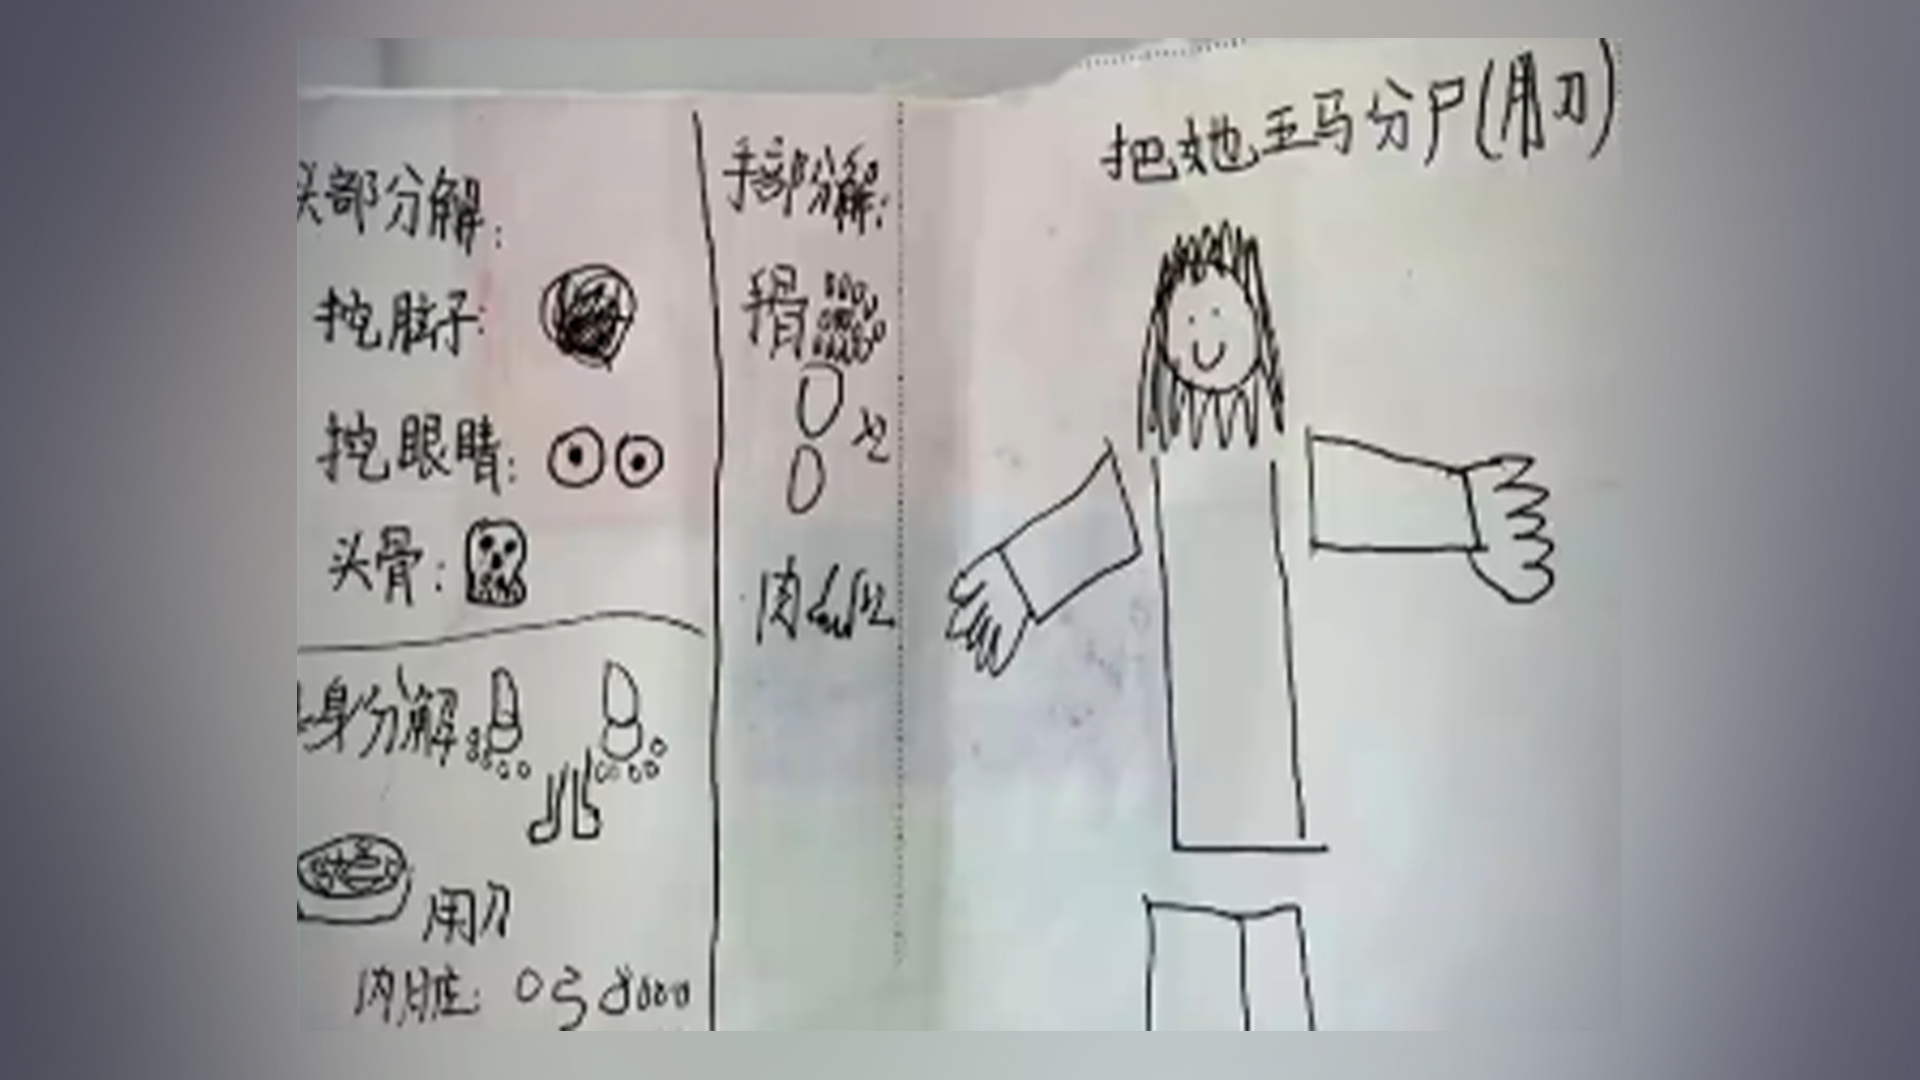 把她五马分尸(用刀)
头部分解:
挖脑子:
挖眼睛:
头骨:
手部分解:
手骨
x2
肉
x2
身分解
用刀
内脏: